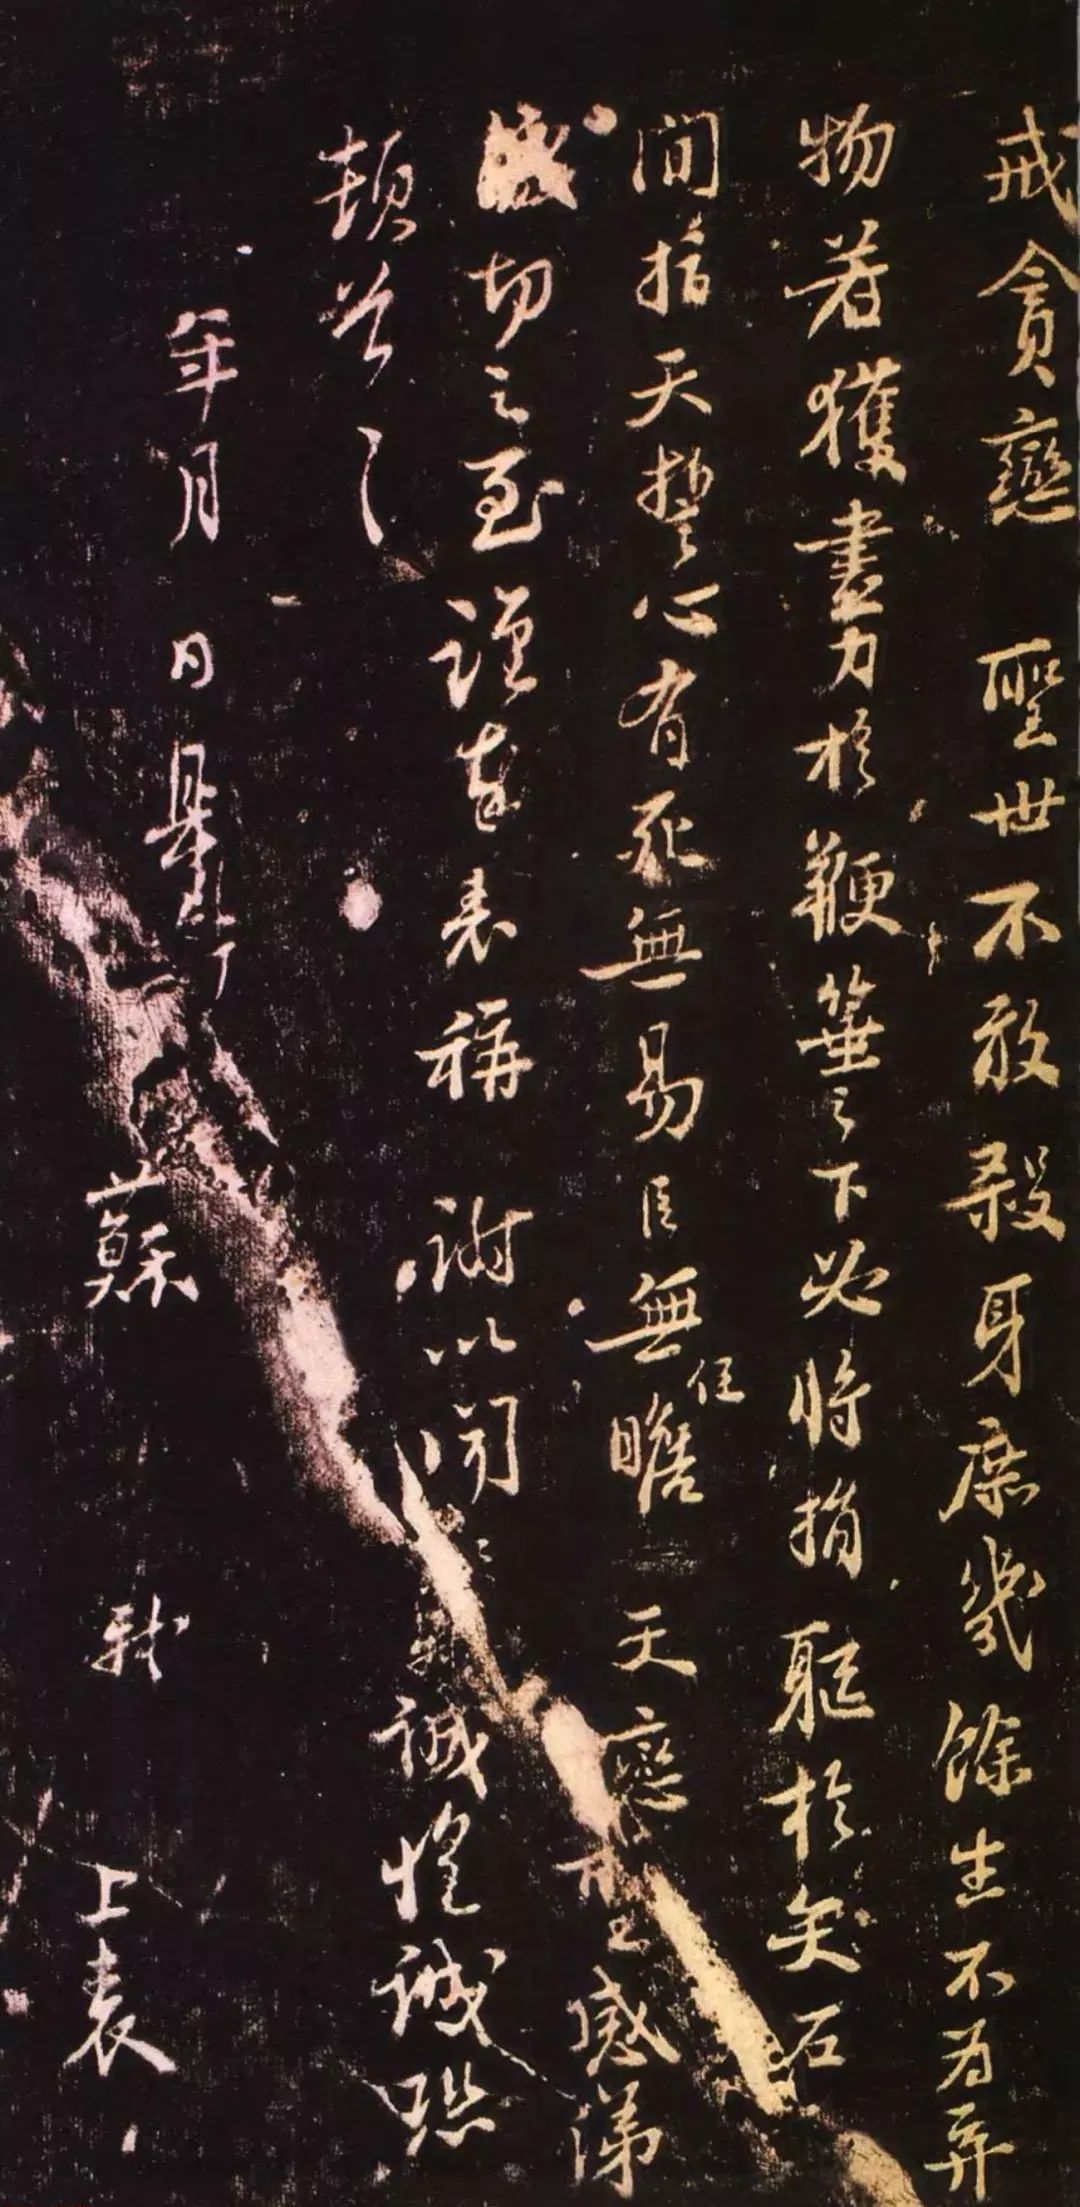 戒貪戀 聖世不敢殺身庶幾餘生不為弃
物若獲盡力於鞭箠之下必將捐軀於矢石
間指天誓心有死無易臣無任瞻 天戀聖感涕
切之至謹奉表稱 謝以聞 軾誠惶誠恐
頓首
年月 日
蘇 軾 上表